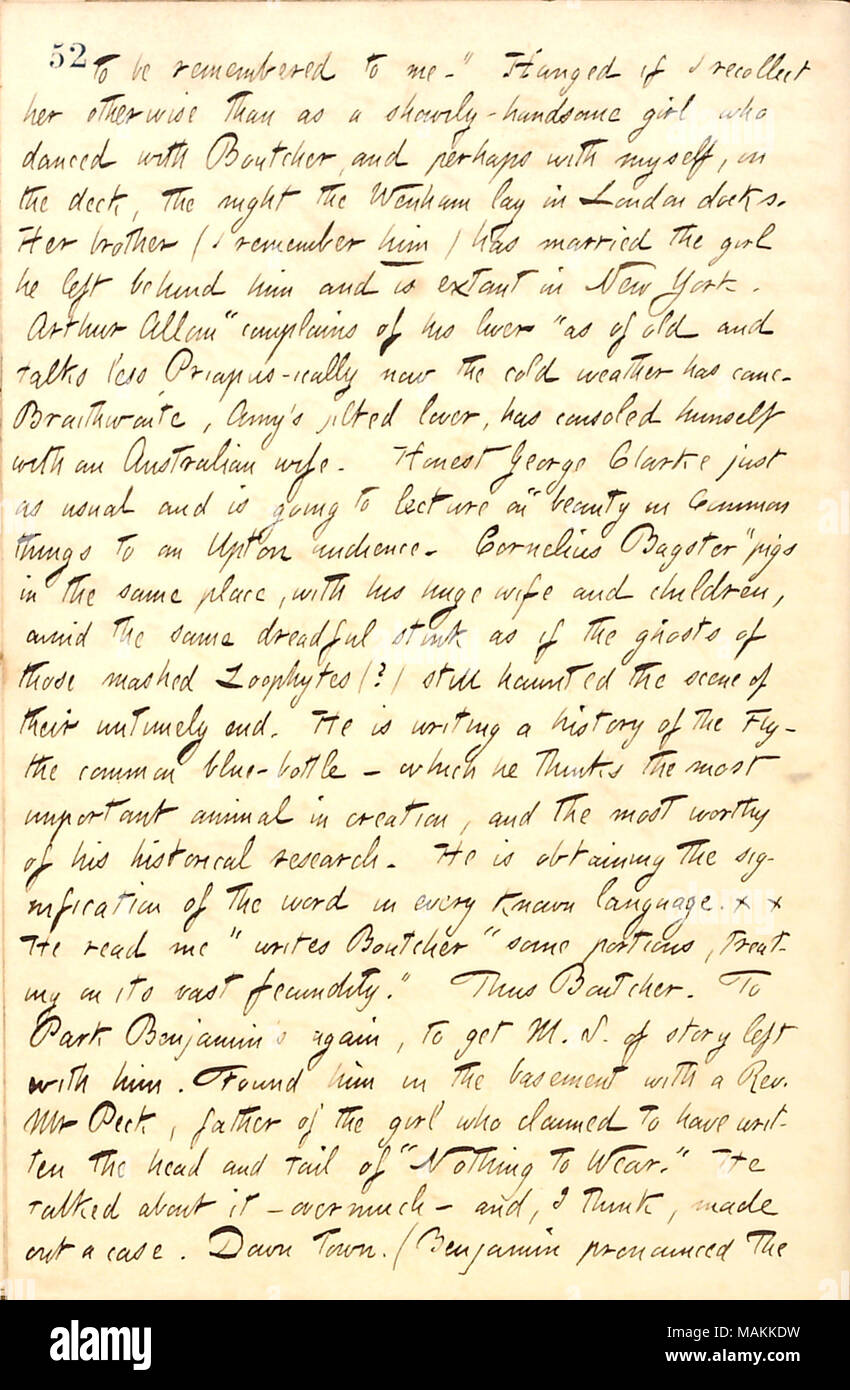 52
to be remembered to me." Hanged if I recollect
her otherwise than as a showily-handsome girl who
danced with Boutcher, and perhaps with myself, on
the deck, the night the Wenham lay in London docks.
Her brother (I remember him) has married the girl
he left behind him and is extant in New York.
Arthur Allom "complains of his liver" as of old and
talks less Priapus-ically now the cold weather has come.
Braithwaite, Amy's jilted lover, has consoled himself
with an Australian wife. Honest George Clarke just
as usual and is going to lecture on "beauty in Common
things to an Upton audience. Cornelius Bagster "pigs
in the same place, with his huge wife and children,
amid the same dreadful stink as if the ghosts of
those mashed Zoophytes (?) still haunted the scene of
their untimely end. He is writing a history of the Fly-
the common blue-bottle - which he thinks the most
important animal in creation, and the most worthy
of his historical research. He is obtaining the sig-
nification of the word in every known language. x x
He read me" writes Boutcher "some portions, treat-
ing on its vast fecundity." Thus Boutcher. To
Park Benjamin's again, to get M.S. of story left
with him. Found him in the basement with a Rev.
Mr Peck, father of the girl who claimed to have writ-
ten the head and tail of "Nothing to Wear." He
talked about it - overmuch - and, I think, made
out a case. Down Town. (Benjamin pronounced the
alamy
Image ID: MAKKDW
www.alamy.com